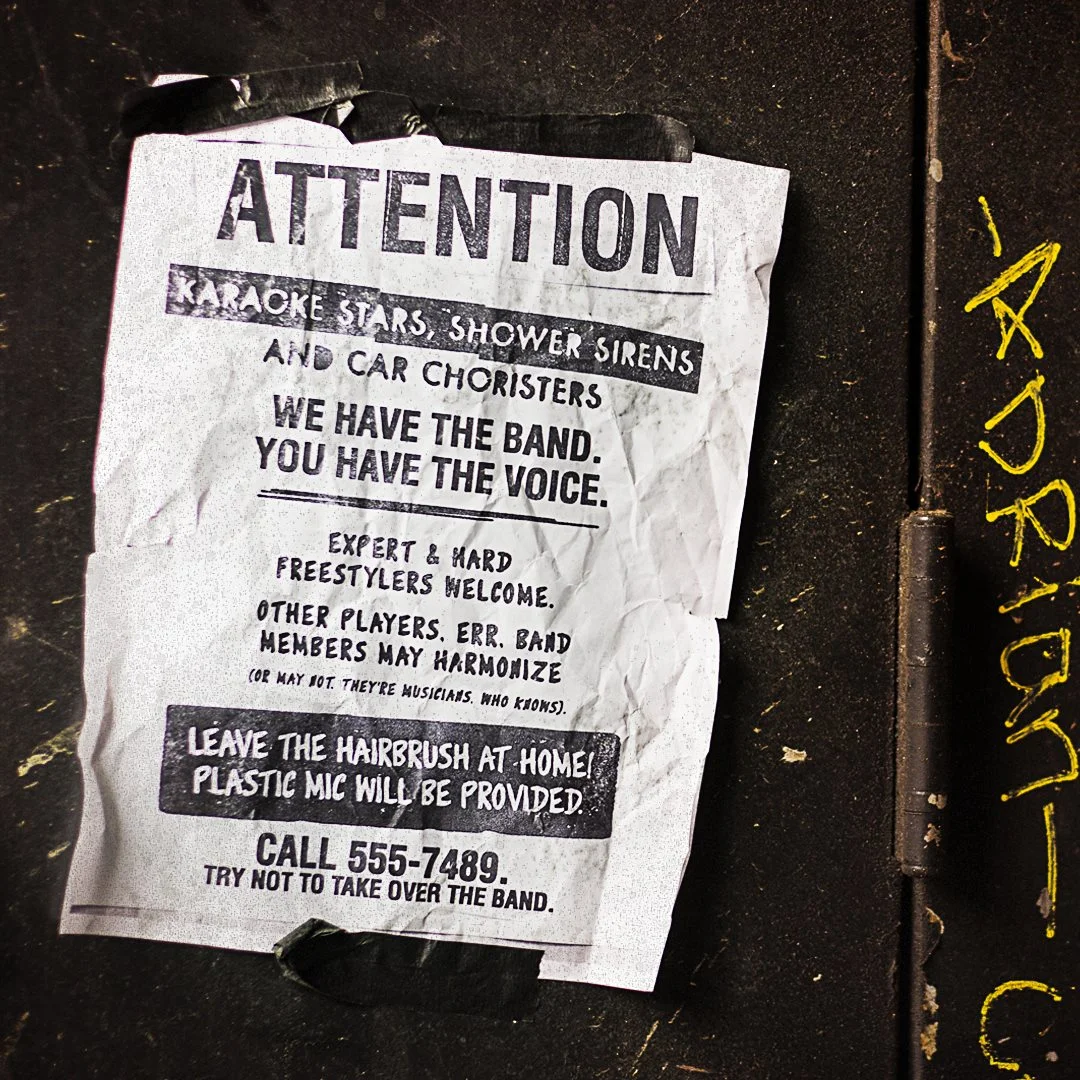 ATTENTION
KARAOKE STARS, SHOWER SIRENS
AND CAR CHORISTERS
WE HAVE THE BAND.
YOU HAVE THE VOICE.
EXPERT & HARD
FREESTYLERS WELCOME.
OTHER PLAYERS, ERR, BAND
MEMBERS MAY HARMONIZE
(OR MAY NOT. THEY'RE MUSICIANS. WHO KNOWS).
LEAVE THE HAIRBRUSH AT HOME!
PLASTIC MIC WILL BE PROVIDED.
CALL 555-7489.
TRY NOT TO TAKE OVER THE BAND.